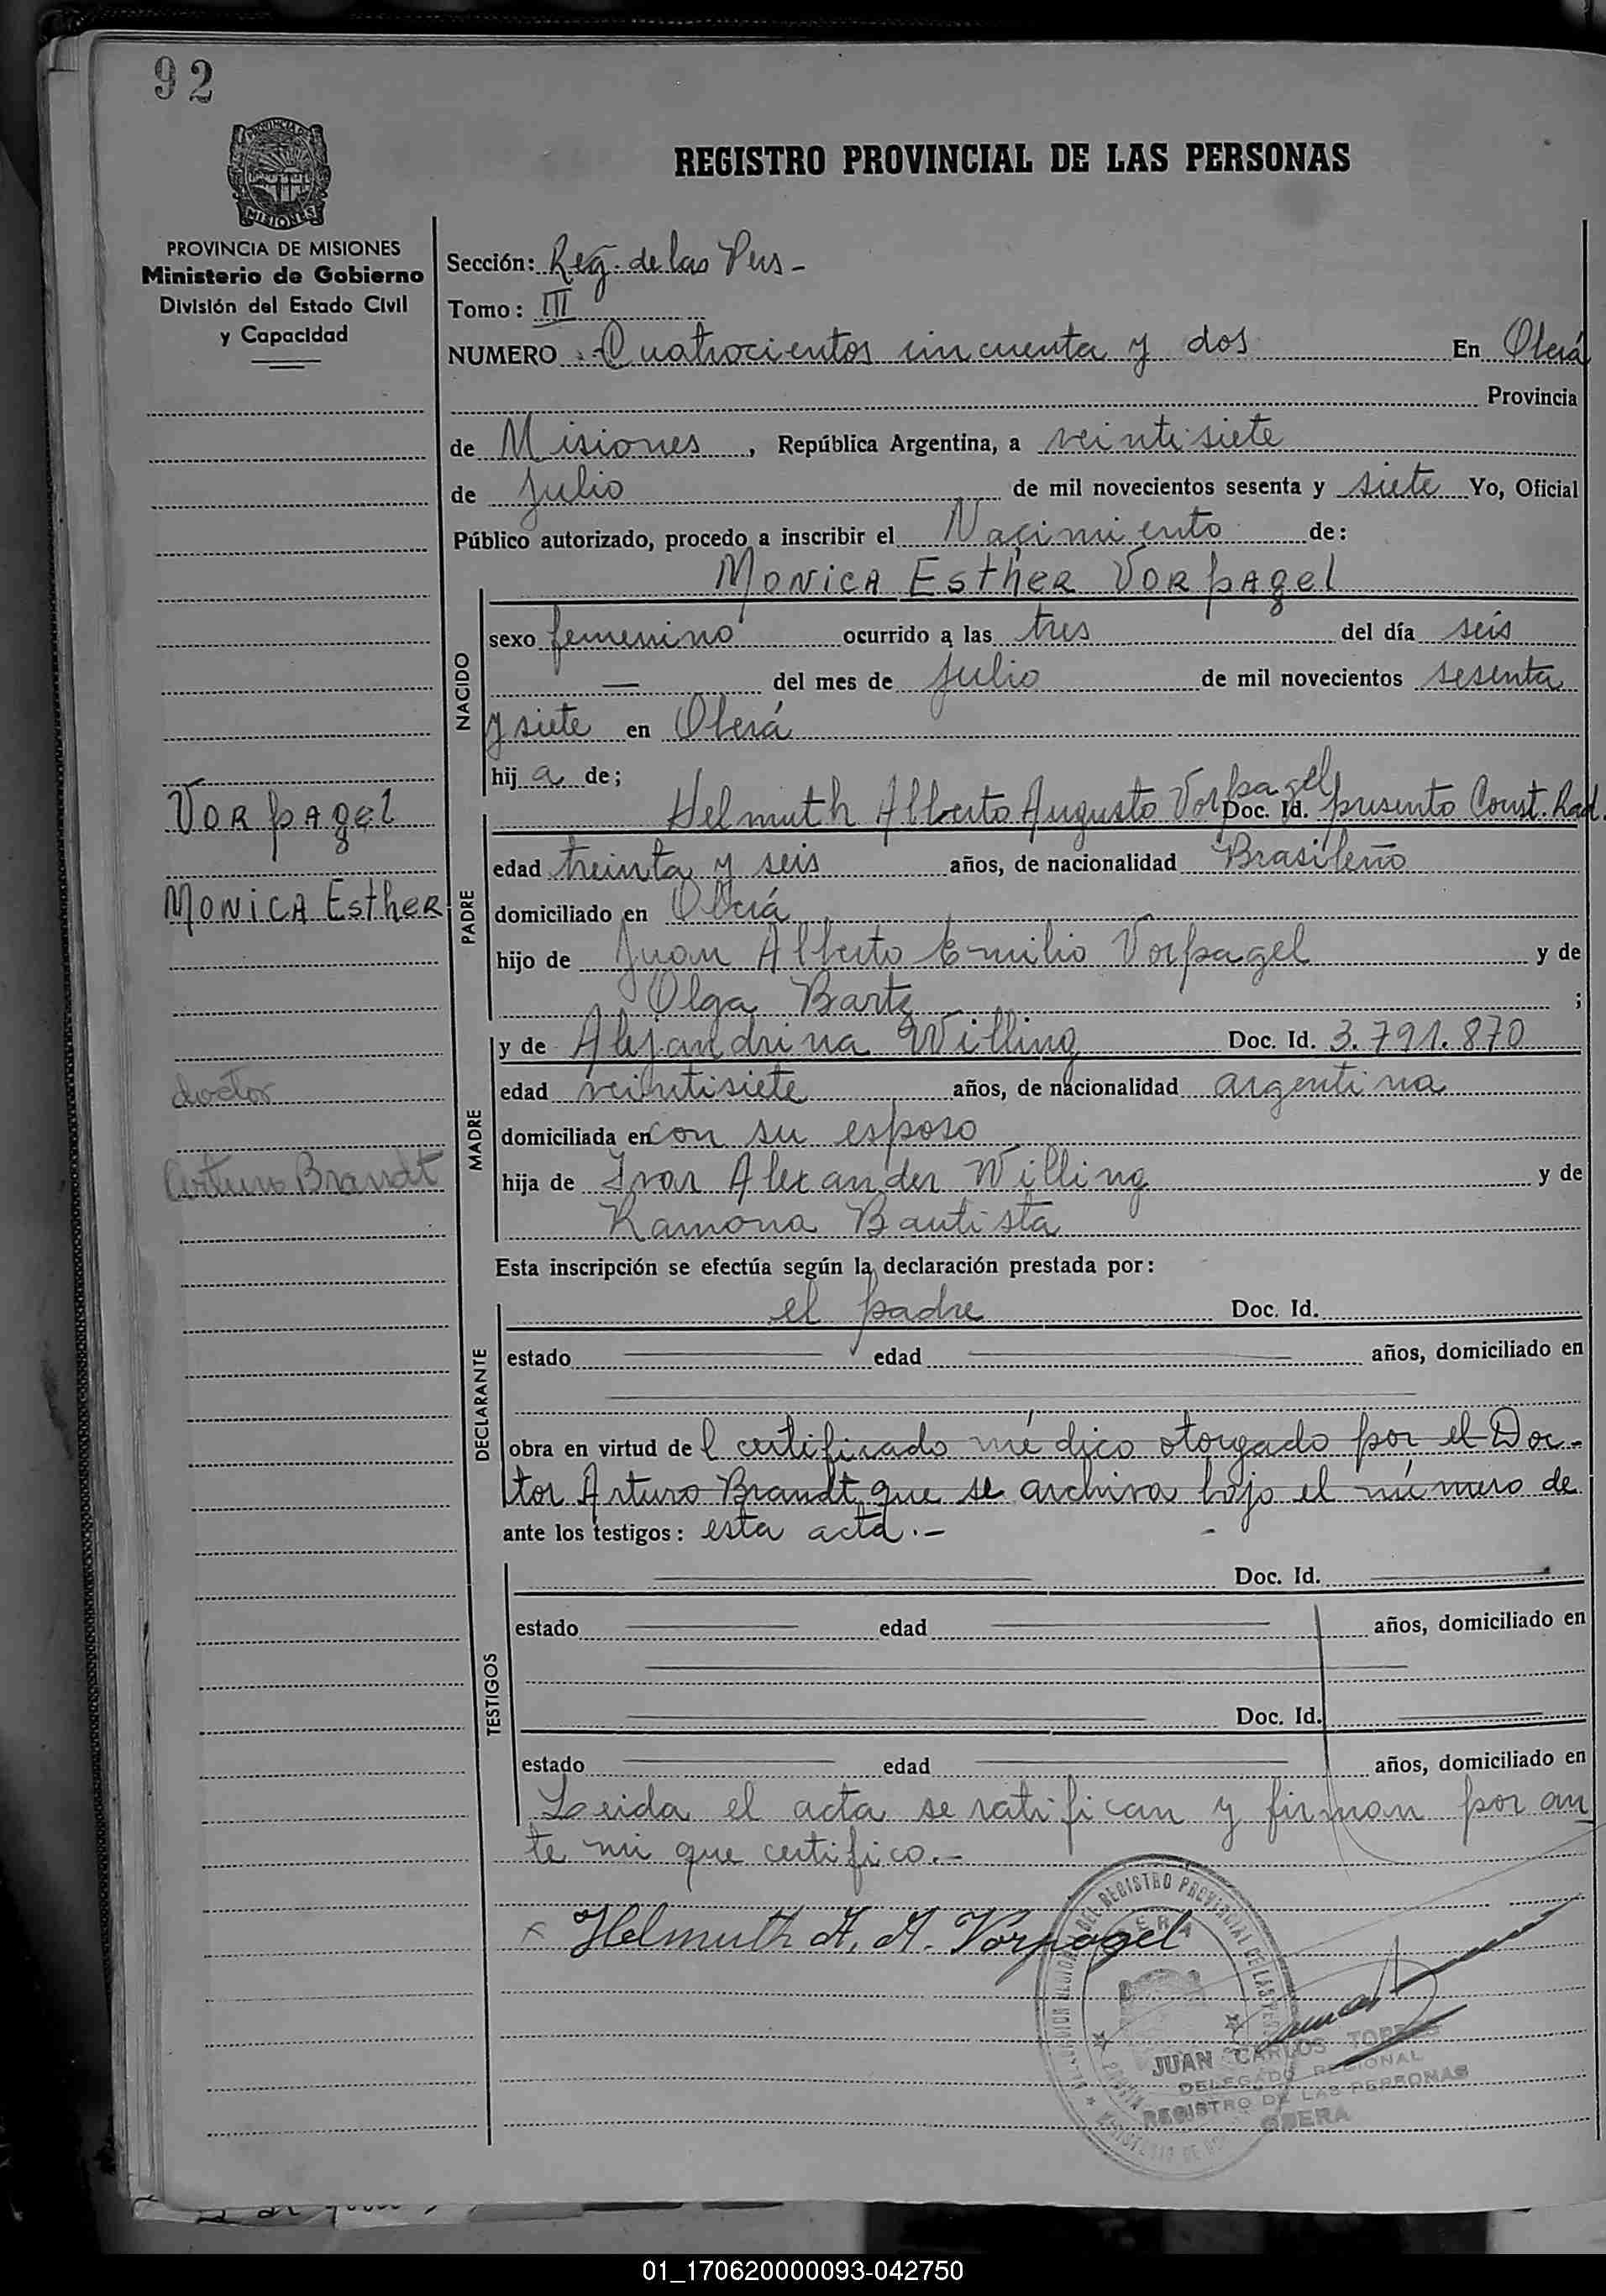 92
PROVINCIA DE
MISIONES
PROVINCIA DE MISIONES
Ministerio de Gobierno
División del Estado Civil
y Capacidad
REGISTRO PROVINCIAL DE LAS PERSONAS
Sección: Reg. de las Pers -
Tomo: III
NUMERO Cuatrocientos cincuenta y dos En Oberá
Provincia
de Misiones, República Argentina, a veintisiete
de julio de mil novecientos sesenta y siete Yo, Oficial
Público autorizado, procedo a inscribir el Nacimiento de:
Monica Esther Vorpagel
NACIDO
sexo femenino ocurrido a las tres del día seis
— del mes de julio de mil novecientos sesenta
y siete en Oberá
hij a de;
Vorpagel
Monica Esther
doctor
Arturo Brandt
PADRE
Helmuth Alberto Augusto Vorpagel Doc. Id. presento Const. Rad.
edad treinta y seis años, de nacionalidad Brasileño
domiciliado en Oberá
hijo de Juan Alberto Emilio Vorpagel y de
Olga Bartz ;
MADRE
y de Alejandrina Willing Doc. Id. 3.791.870
edad veintisiete años, de nacionalidad argentina
domiciliada en con su esposo
hija de Ivar Alexander Willing y de
Ramona Bautista
Esta inscripción se efectúa según la declaración prestada por:
DECLARANTE
el padre Doc. Id.
estado edad años, domiciliado en
obra en virtud de l certificado médico otorgado por el Doc-
tor Arturo Brandt que se archiva bajo el número de
ante los testigos: esta acta.-
TESTIGOS
Doc. Id.
estado edad años, domiciliado en
Doc. Id.
estado edad años, domiciliado en
Leida el acta se ratifican y firman por an
te mi que certifico.-
x Helmuth A. A. Vorpagel
DEL REGISTRO PROVINCIAL DE LAS
JUAN CARLOS TORRES
DELEGADO REGIONAL
REGISTRO DE LAS PERSONAS
OBERA
01_170620000093-042750